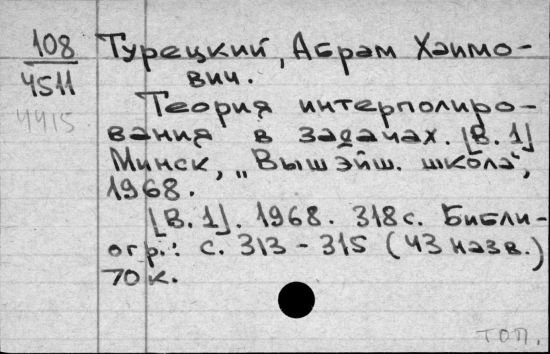 108 Турецкий, Абрам Хаимо-
4511 вич.
4415 Теория интерполиро-
вания в задачах. [В. 1]
Минск, „Вышэйш. школа",
1968.
[В. 1]. 1968. 318 с. Библи-
огр.: с. 313-315 (43 назв.)
70 к.
топ.